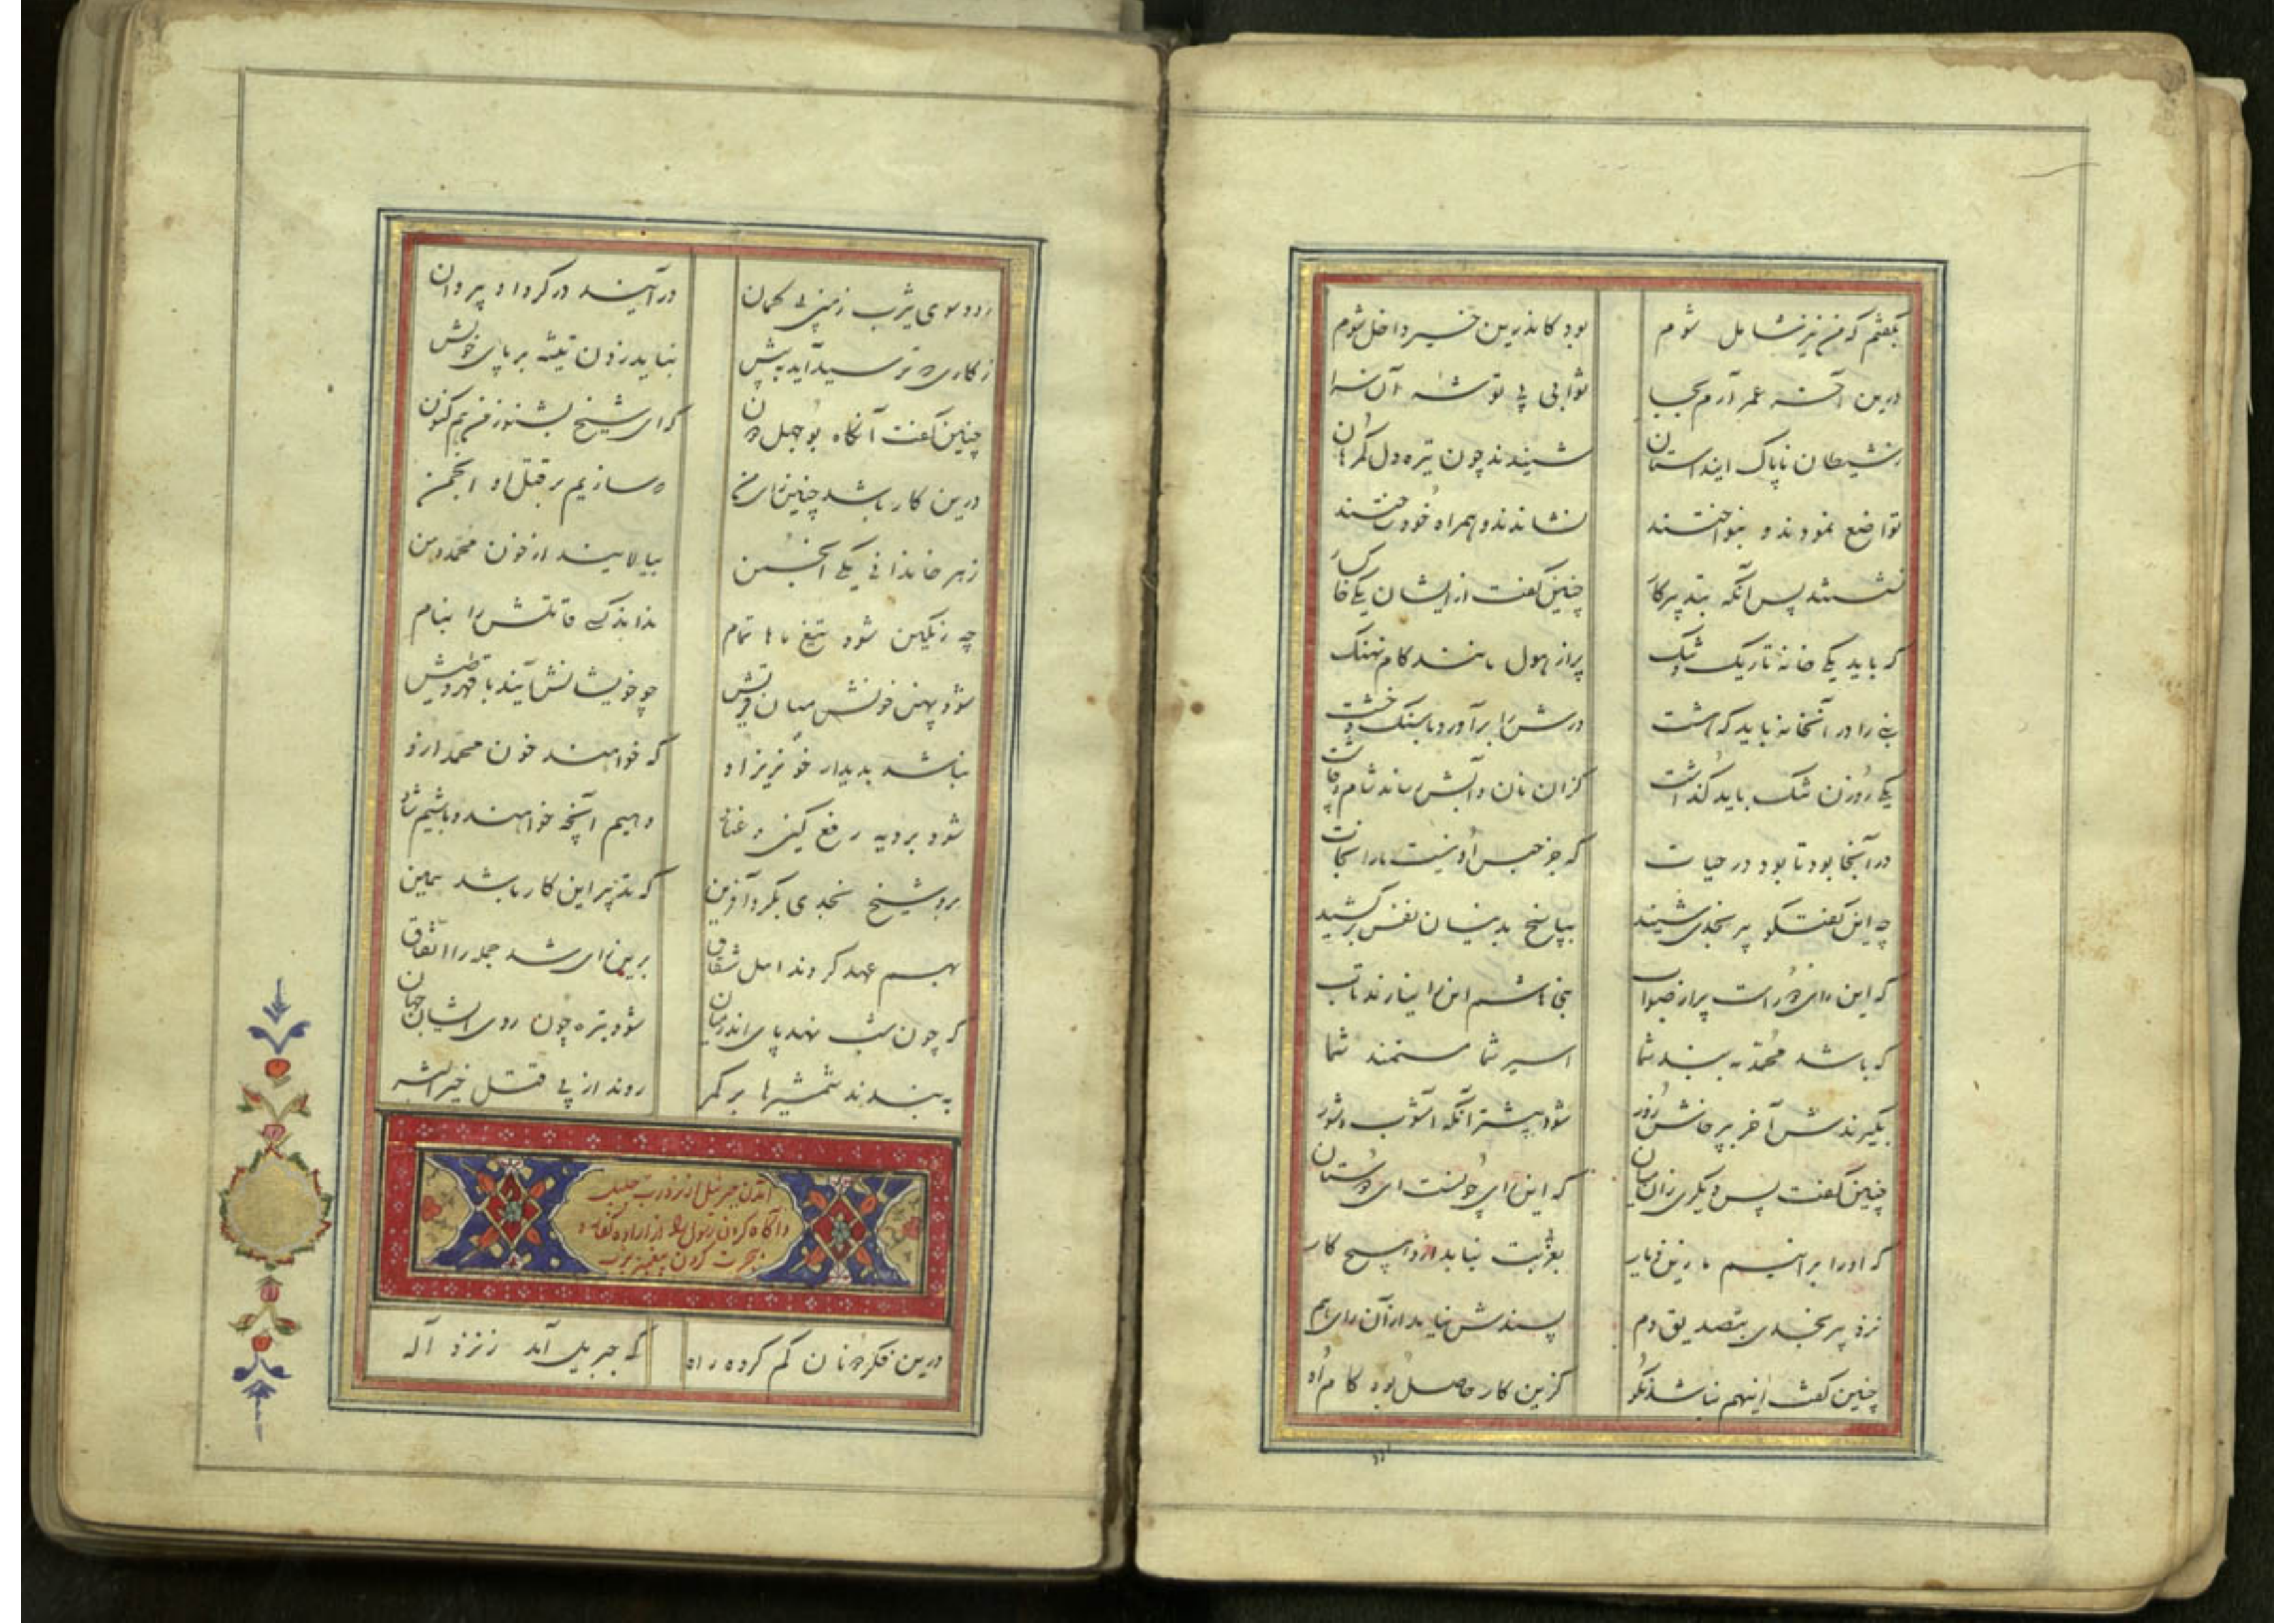 بگفتم که من نیز شامل شوم بود کاندرین خیر داخل شوم
درین آخر عمر آرم بجا ثوابی پی توشه آن سرا
ز شیطان ناپاک این داستان شنیدند چون تیره دل گمرهان
تواضع نمودند و بنواختند نشاندند و همراه خود ساختند
نشستند پس آنگه بتدبیر کار چنین گفت از ایشان یکی خاکسار
که باید یکی خانه تاریک و تنگ پر از هول مانند کام نهنگ
نبی را در آنخانه باید بهشت درش را برآورد با سنگ و خشت
یکی روزن تنک باید گذاشت کزان نان و آبش رساند شام و چاشت
در آنجا بود تا بود در حیات که جز حبس او نیست ما را نجات
چه این گفتگو پیر نجدی شنید بپاسخ بدینسان نفس برکشید
که این رای دور است پر از صواب بنی هاشم این را نیارند تاب
که باشد محمد به بند شما اسیر شما مستمند شما
بگیرندش آخر پرخاش و زور شود بیشتر آنگه آشوب و شور
چنین گفت پس دیگری زان میان که این رای خوب نیست ای دوستان
که او را برانیم ما زین دیار بغربت نیاید ازو هیچ کار
نزد پیر نجدی بتصدیق دم پسندش نیامد از آن رای هم
چنین گفت اینهم نباشد نکو کزین کار حاصل بود کام او
رود سوی یثرب زمین بی گمان درآیند در گرد او پیروان
ز کاری که ترسید آید به پیش نباید زدن تیشه بر پای خویش
چنین گفت آنگاه بوجهل دون که ای شیخ بشنو ز من هم کنون
درین کار باشد چنین رای من که سازیم بر قتل او انجمن
ز هر خاندانی یکی انجمن بیالایند از خون محمد من
چه رنگین شود تیغ ما ها تمام نداند کسی قاتلش را بنام
شود پهن خونش میان قریش چو خویشانش آیند با قهر و طیش
نباشد پدیدار خونریز او که خواهند خون محمد ازو
شود بر دیه رفع کین و عناد دهیم آنچه خواهند و باشیم شاد
برو شیخ نجدی بکرد آفرین که تدبیر این کار باشد همین
بهم عهد کردند اهل شقاق برین رای شد جمله را اتفاق
که چون شب نهد پای اندر میان شود تیره چون روی ایشان جهان
به بندند شمشیرها بر کمر روند از پی قتل خیر البشر
آمدن جبرئیل از نزد رب جلیل
و آگاه کردن رسول را از اراده کفار و
هجرت کردن پیغمبر
درین فکر دونان گم کرده راه که جبریل آمد ز نزد آله